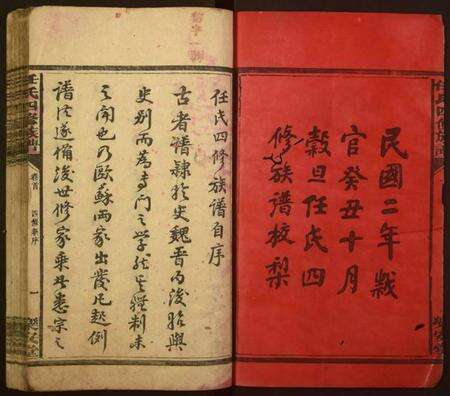 民國二年歲
官癸丑十月
榖旦任氏四
修族譜校梨
任氏四修族譜自序
古者譜隸於史魏晉而後始與
史別而為專門之學然其體制未
之聞也乃歐蘇兩家出發凡起例
譜法遂備後世修家乘者悉宗之
任氏四修族譜
卷首
四修自序
一